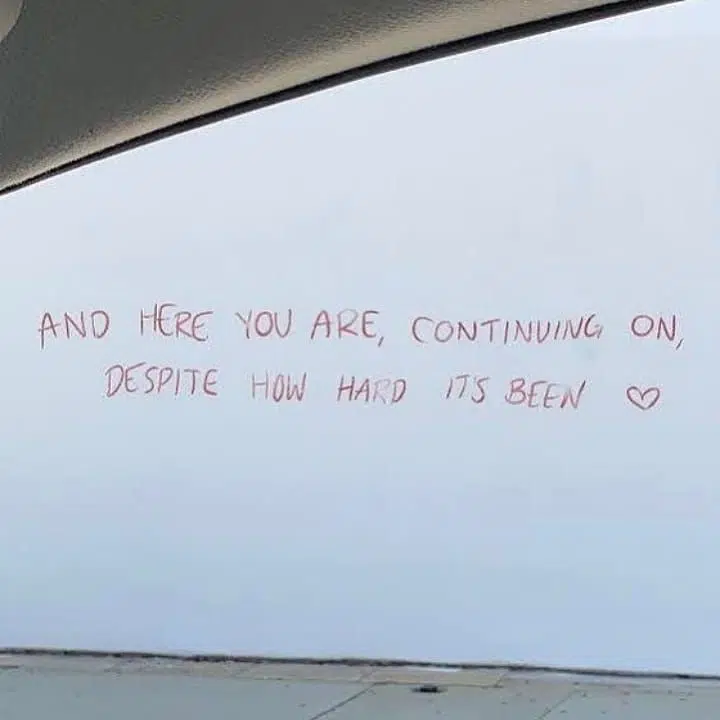 AND HERE YOU ARE, CONTINUING ON,
DESPITE HOW HARD ITS BEEN ♡